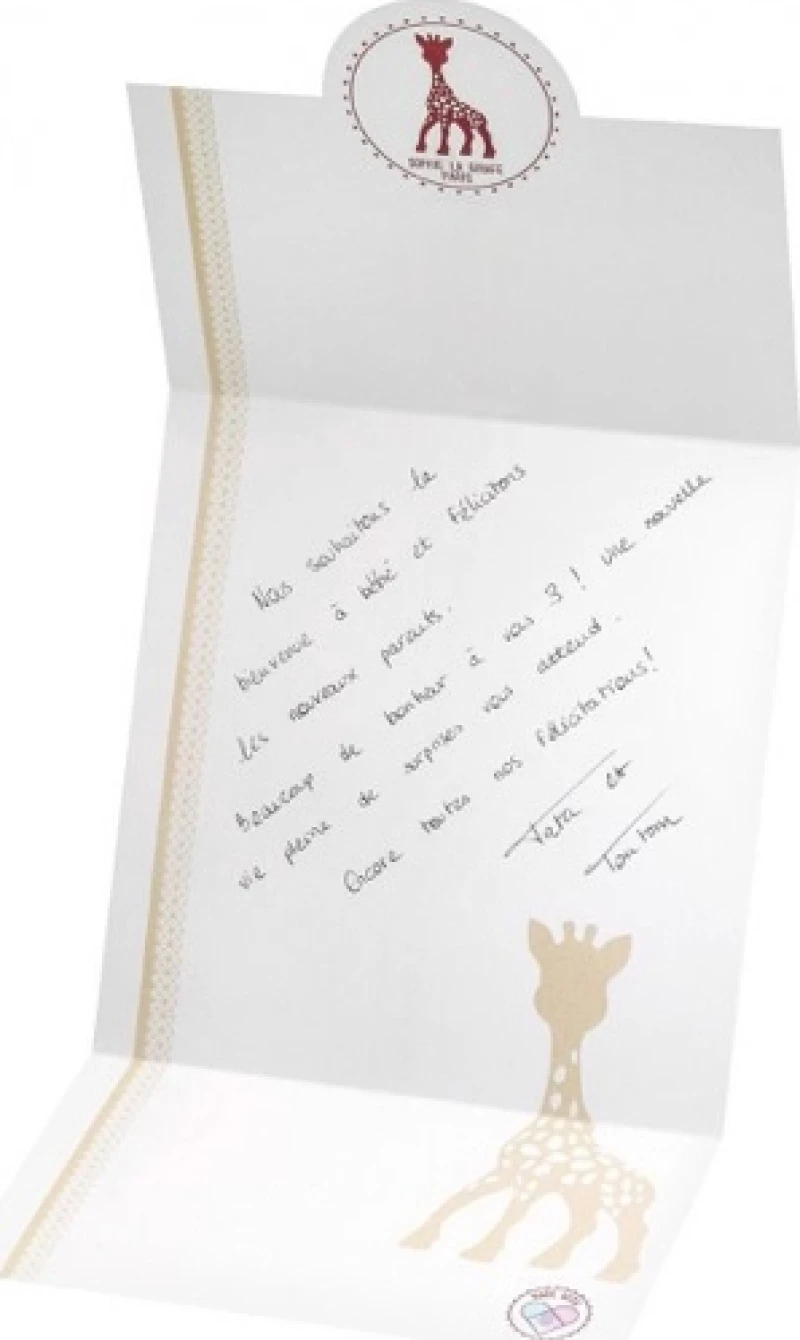 SOPHIE LA GIRAFE
PARIS
Nous souhaitons la
bienvenue à bébé et félicitons
les nouveaux parents.
Beaucoup de bonheur à vous 3 ! Une nouvelle
vie pleine de surprises vous attend.
Encore toutes nos félicitations !
Tata et
Tonton